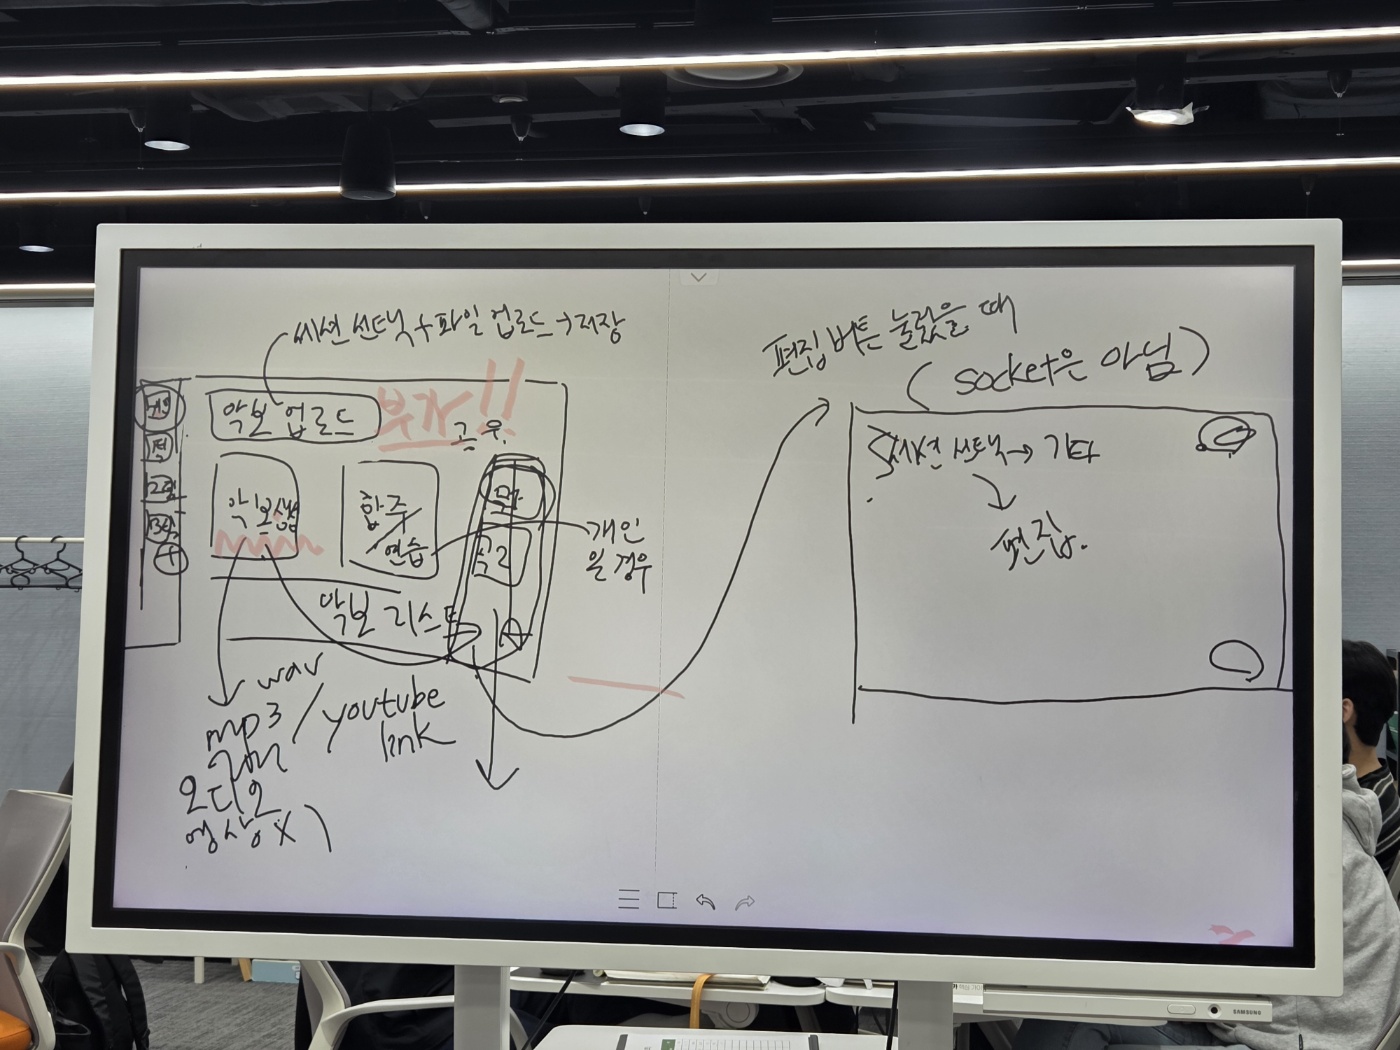 세션 선택 + 파일 업로드 → 저장
악보 업로드
부가!!
공유
개인
악보생성
합주
연습
곡2
개인
일 경우
악보 리스트
wav
mp3 / youtube
link
오디오
영상 X )
편집 버튼 눌렀을 때
( socket은 아님 )
세션 선택 → 기타
편집.
SAMSUNG